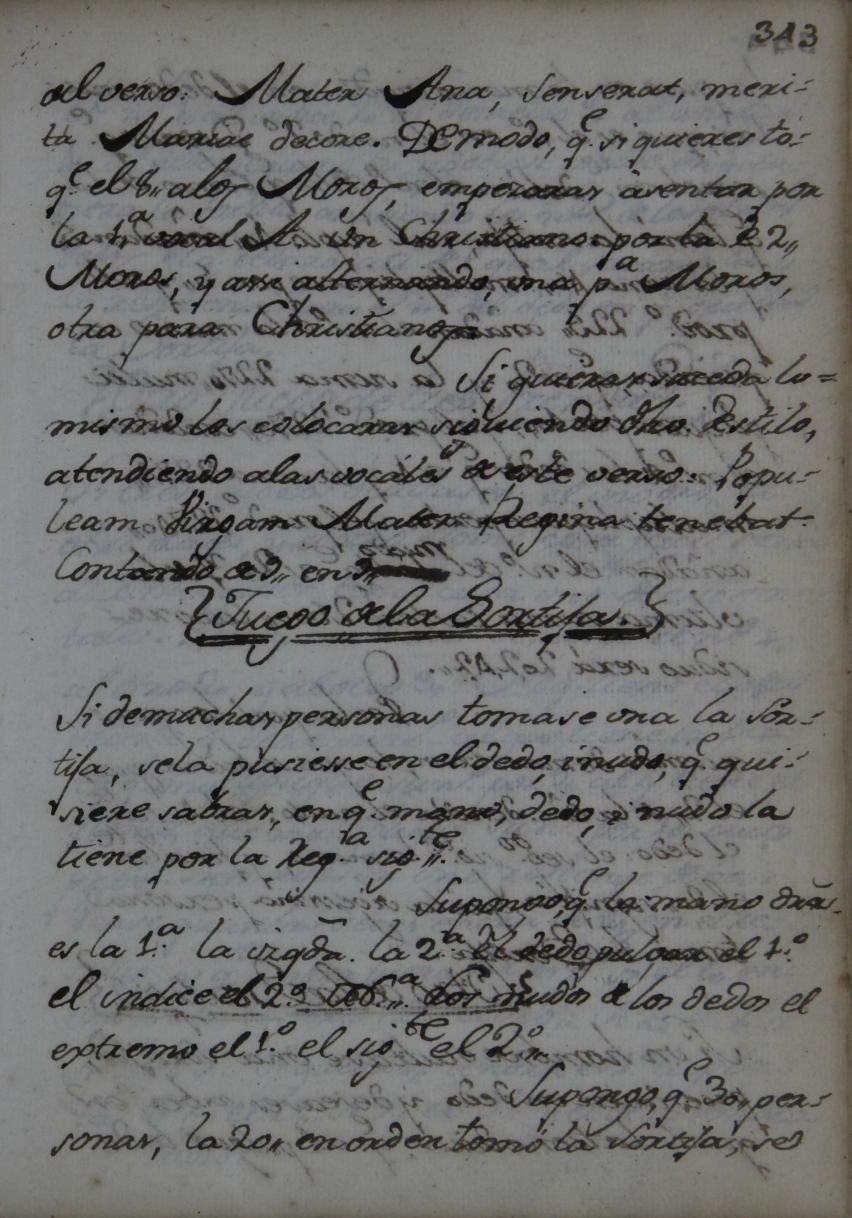 313
al verso: Mater Ana, senserat, meri-
ta Mariae decore. De modo, q.e si quieres to-
q.e el 8,, a los Moros, empezaras à sentar por
la 1.a vocal A. un Christiano: por la e 2,,
Moros, y assi alternando, una p.a Moros,
otra para Christianos.
Si quieres, suceda lo=
mismo los colocaras siguiendo dho. Estilo,
atendiendo a las vocales de este verso: Popu-
leam Virgam Mater Regina tenebat.
Contando de 9,, en 9,,
{Juego de la Sortija.}
Si de muchas personas tomase una la Sor-
tija, se la pusiesse en el dedo, i nudo, q.e qui-
siere sabras, en q.e mano, dedo, i nudo la
tiene por la Reg.a sig.te,,.
Supongo, q.e la mano dra.
es la 1.a la izqda. la 2.a El dedo pulgar el 1.o
el indice el 2.o los nudos de los dedos el
extremo el 1.o el sig.te el 2.o,,
Supongo, q.e 30,, per-
sonas, la 20,, en orden tomó la Sortija, se